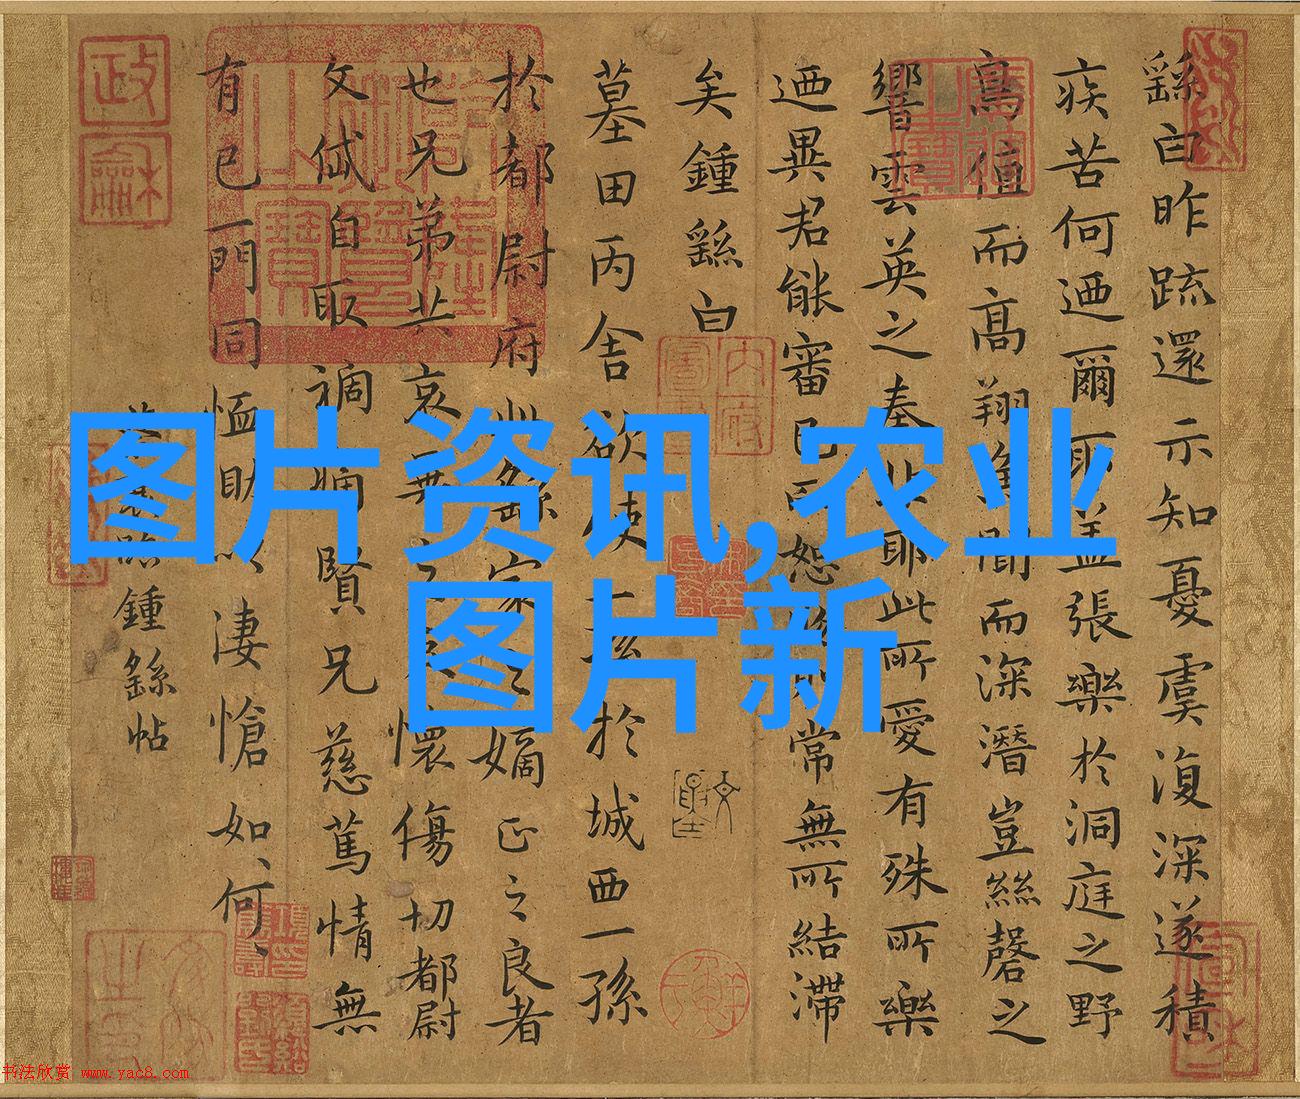 图片资讯,农业
图片新
繇白昨疏還示知憂虞復深遂積
疾苦何迺爾耶盖張樂於洞庭之野
鳥值而高翔魚聞而深潛豈絲磬之
響雲英之奏非耶此所愛有殊所樂
迺異君能審己而恕物則常無所結滯
矣鍾繇白
墓田丙舍欲使一孫於城西一孫
於都尉府此繇家之嫡正之良者
也兄弟共哀懷傷切都尉
文岱自取禍痛賢兄慈篤情無
有已一門同恤助以凄愴如何
臨鍾繇帖
书法欣赏 www.yac8.com